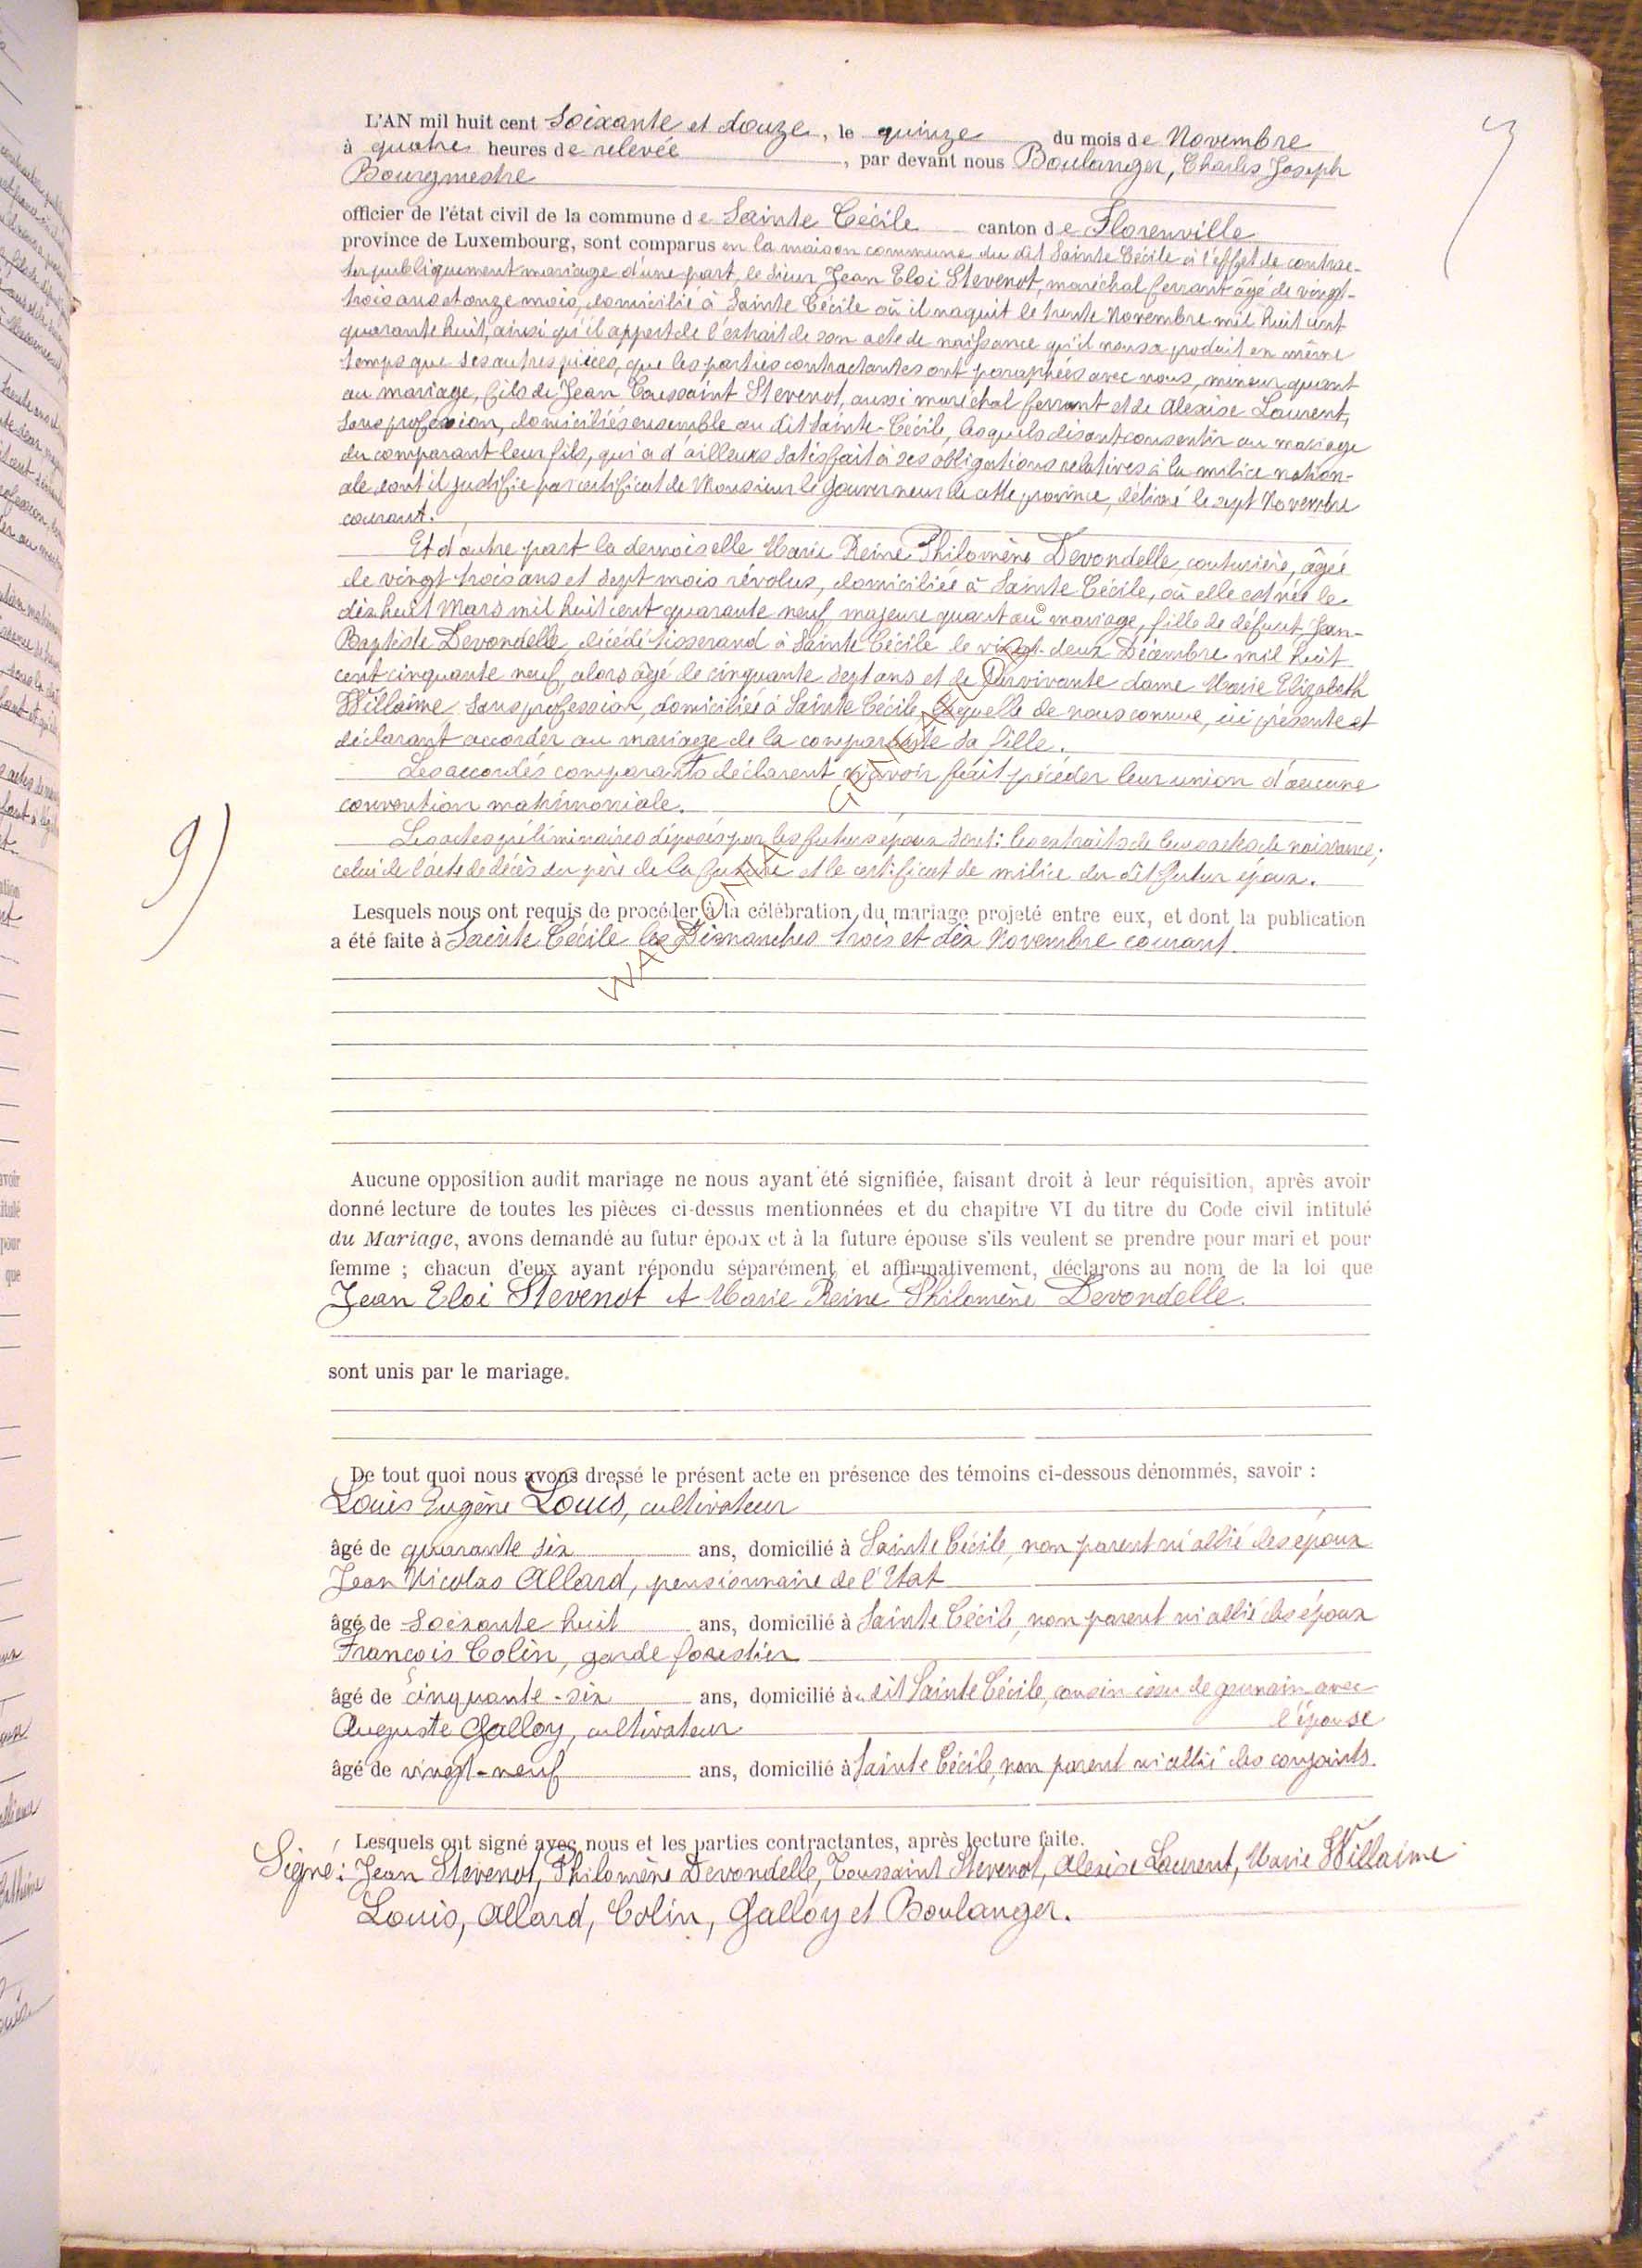 L'AN mil huit cent Soixante et douze, le quinze du mois de Novembre
à quatre heures de relevée, par devant nous Boulanger, Charles Joseph
Bourgmestre
officier de l'état civil de la commune de Sainte Cécile canton de Florenville
province de Luxembourg, sont comparus en la maison commune du dit Sainte Cécile à l'effet de contrac-
ter publiquement mariage d'une part, le sieur Jean Eloi Stevenot, maréchal ferrant âgé de vingt-
trois ans et onze mois, domicilié à Sainte Cécile où il naquit le trente Novembre mil huit cent
quarante huit, ainsi qu'il appert de l'extrait de son acte de naissance qu'il nous a produit en même
temps que ses autres pièces, que les parties contractantes ont paraphées avec nous, mineur quant
au mariage, fils de Jean Toussaint Stevenot, aussi maréchal ferrant et de Alexise Laurent,
sans profession, domiciliés ensemble au dit Sainte-Cécile, lesquels disant consentir au mariage
du comparant leur fils, qui a d'ailleurs satisfait à ses obligations relatives à la milice nation-
ale dont il justifie par certificat de Monsieur le Gouverneur de cette province, délivré le sept Novembre
courant.
Et d'autre part la demoiselle Marie Reine Philomène Devondelle, couturière, âgée
de vingt trois ans et sept mois révolus, domiciliée à Sainte Cécile, où elle est née le
dix huit Mars mil huit cent quarante neuf, majeure quant au mariage, fille de défunt Jean-
Baptiste Devondelle, décédé tisserand à Sainte Cécile le vingt-deux Décembre mil huit
cent cinquante neuf, alors âgé de cinquante sept ans et de survivante dame Marie Elizabeth
Willaime, sans profession, domiciliée à Sainte Cécile, laquelle de nous connue, ici présente et
déclarant accorder au mariage de la comparante sa fille.
Les accordés comparants déclarent n'avoir fait précéder leur union d'aucune
convention matrimoniale.
9)
Les actes préliminaires déposés par les futurs époux sont: les extraits de leurs actes de naissance;
celui de l'acte de décès du père de la future et le certificat de milice du dit futur époux.
Lesquels nous ont requis de procéder à la célébration du mariage projeté entre eux, et dont la publication
a été faite à Sainte Cécile les Dimanches trois et dix Novembre courant.
Aucune opposition audit mariage ne nous ayant été signifiée, faisant droit à leur réquisition, après avoir
donné lecture de toutes les pièces ci-dessus mentionnées et du chapitre VI du titre du Code civil intitulé
du Mariage, avons demandé au futur époux et à la future épouse s'ils veulent se prendre pour mari et pour
femme ; chacun d'eux ayant répondu séparément et affirmativement, déclarons au nom de la loi que
Jean Eloi Stevenot et Marie Reine Philomène Devondelle.
sont unis par le mariage.
De tout quoi nous avons dressé le présent acte en présence des témoins ci-dessous dénommés, savoir :
Louis Eugène Louis, cultivateur
âgé de quarante six ans, domicilié à Sainte Cécile, non parent ni allié des époux
Jean Nicolas Allard, pensionnaire de l'Etat
âgé de soixante huit ans, domicilié à Sainte Cécile, non parent ni allié des époux
François Colin, garde forestier
âgé de cinquante-six ans, domicilié à dit Sainte Cécile, cousin issu de germain avec
l'épouse
Auguste Galloy, cultivateur
âgé de vingt-neuf ans, domicilié à Sainte Cécile, non parent ni allié des conjoints.
Lesquels ont signé avec nous et les parties contractantes, après lecture faite.
Signé: Jean Stevenot, Philomène Devondelle, Toussaint Stevenot, Alexise Laurent, Marie Willaime
Louis, Allard, Colin, Galloy et Boulanger.